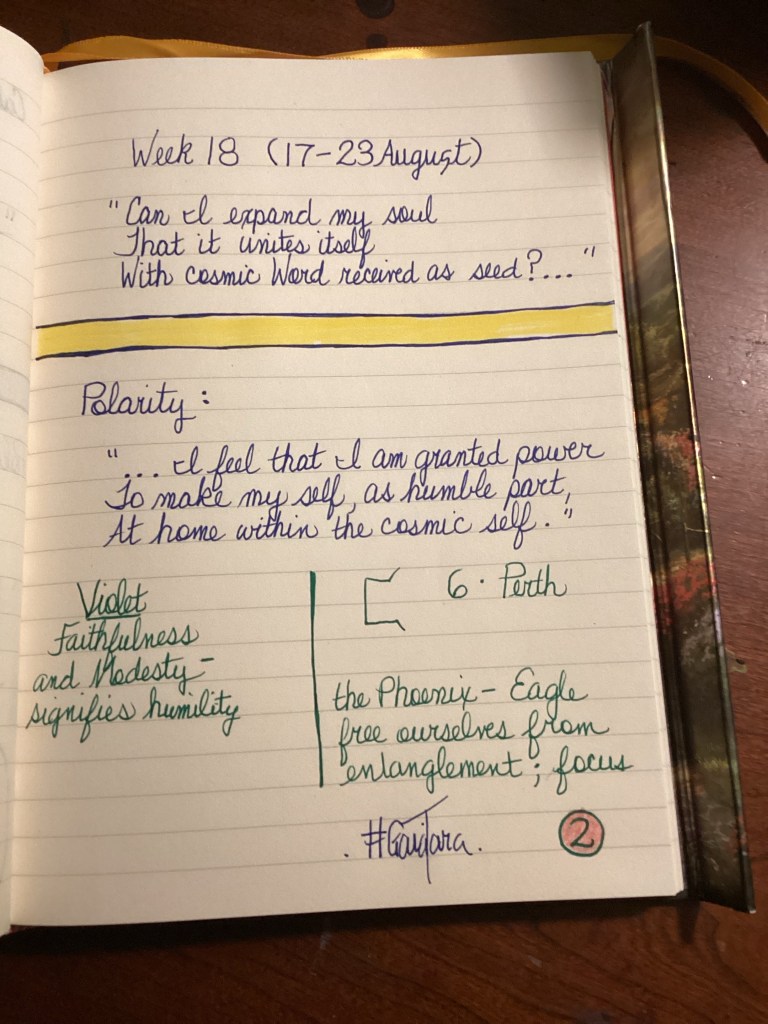 Week 18 (17-23 August)
"Can I expand my soul
That it unites itself
With cosmic Word received as seed?..."
Polarity:
"... I feel that I am granted power
To make my self, as humble part,
At home within the cosmic self."
Violet
Faithfulness
and Modesty-
signifies humility
6. Perth
the Phoenix- Eagle
free ourselves from
entanglement; focus
. #GaiTara.
2